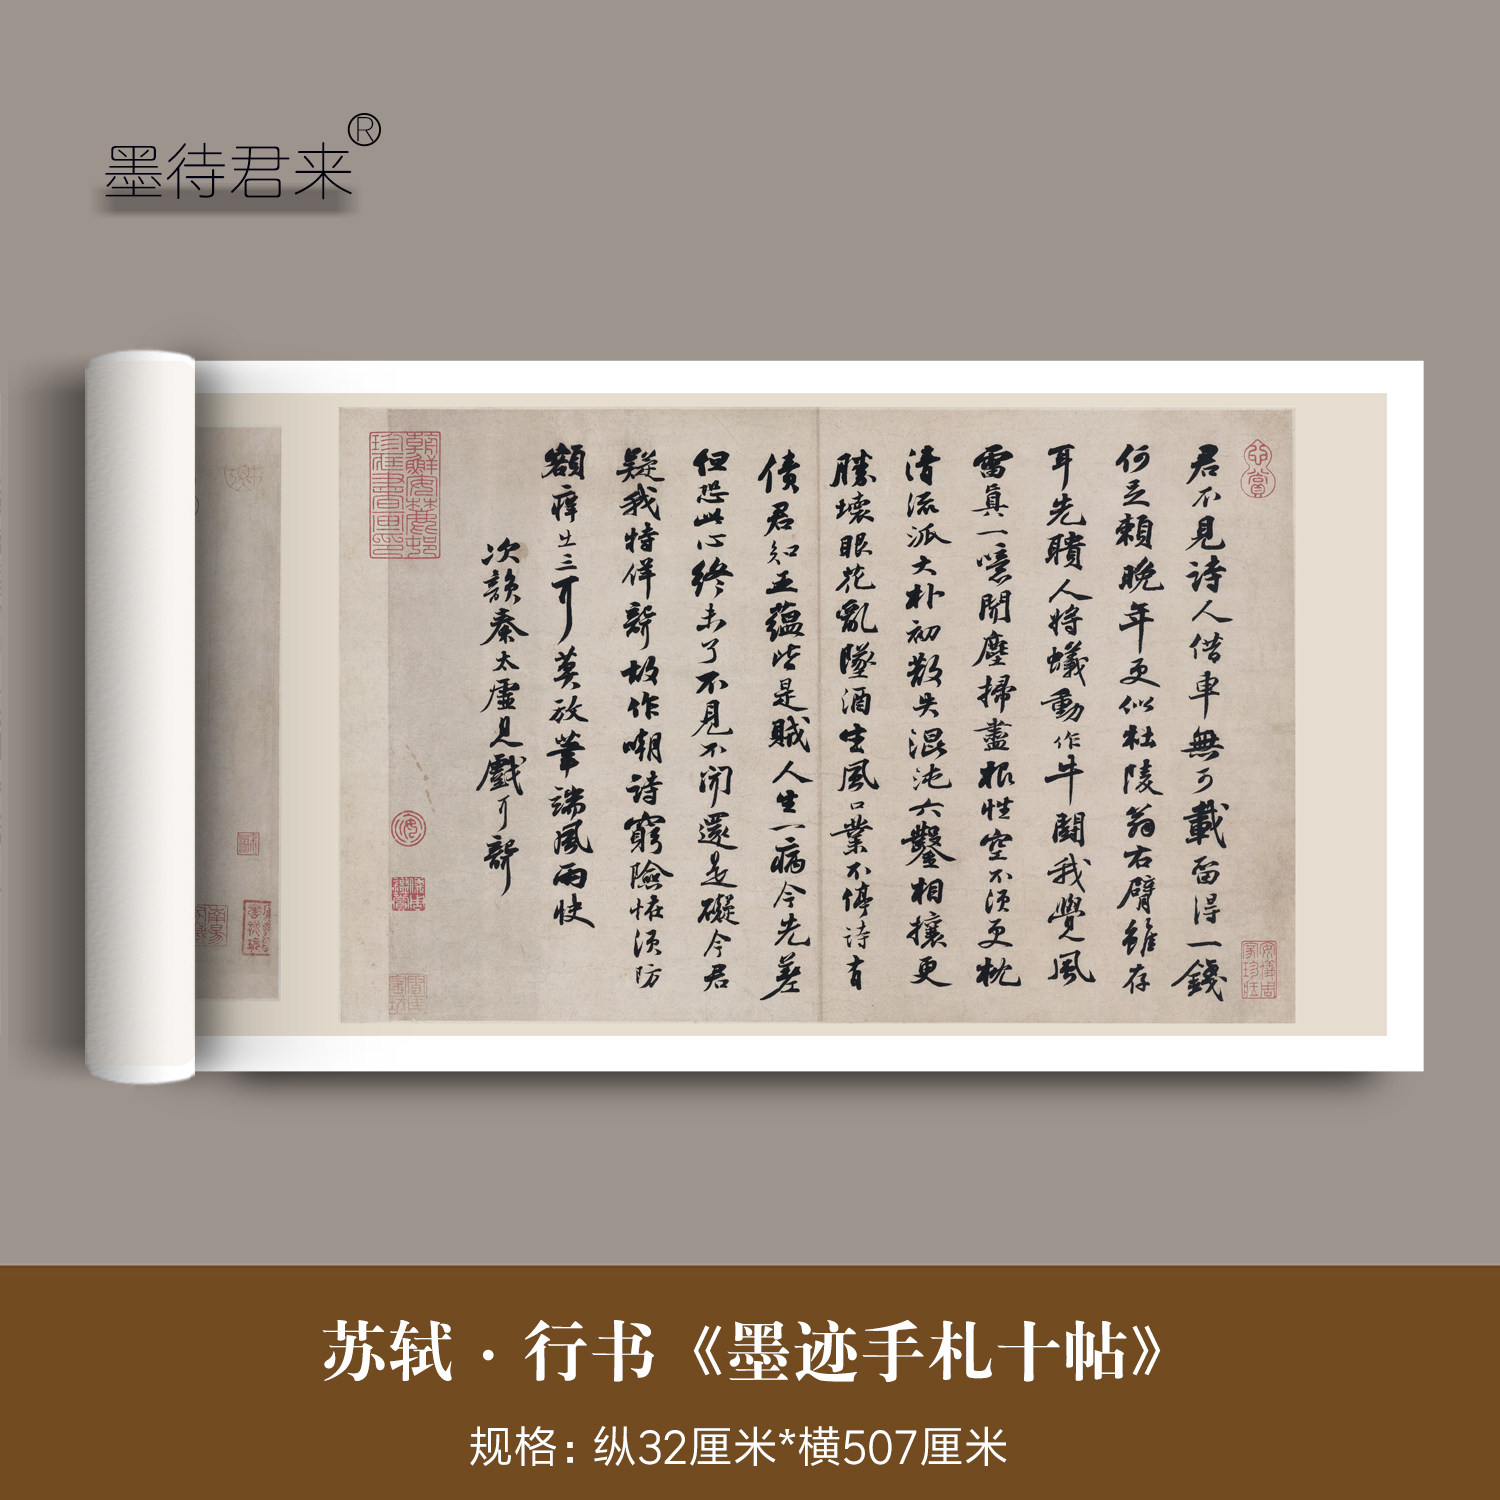 墨待君来®
君不見詩人借車無可載留得一錢
何足賴晚年更似杜陵翁右臂雖存
耳先聵人將蟻動作牛鬪我覺風
雷真一噫聞塵掃盡根性空不須更枕
清流派大朴初散失混沌六鑿相攘更
勝壞眼花亂墜酒生風口業不停詩有
債君知五蘊皆是賊人生一病今先差
但恐此心終未了不見不聞還是礙今君
疑我特佯聾故作嘲詩窮險怪須防
額痒出三耳莫放筆端風雨快
次韻秦太虛見戲耳聾
安儀周家珍藏
苏轼·行书《墨迹手札十帖》
规格：纵32厘米*横507厘米